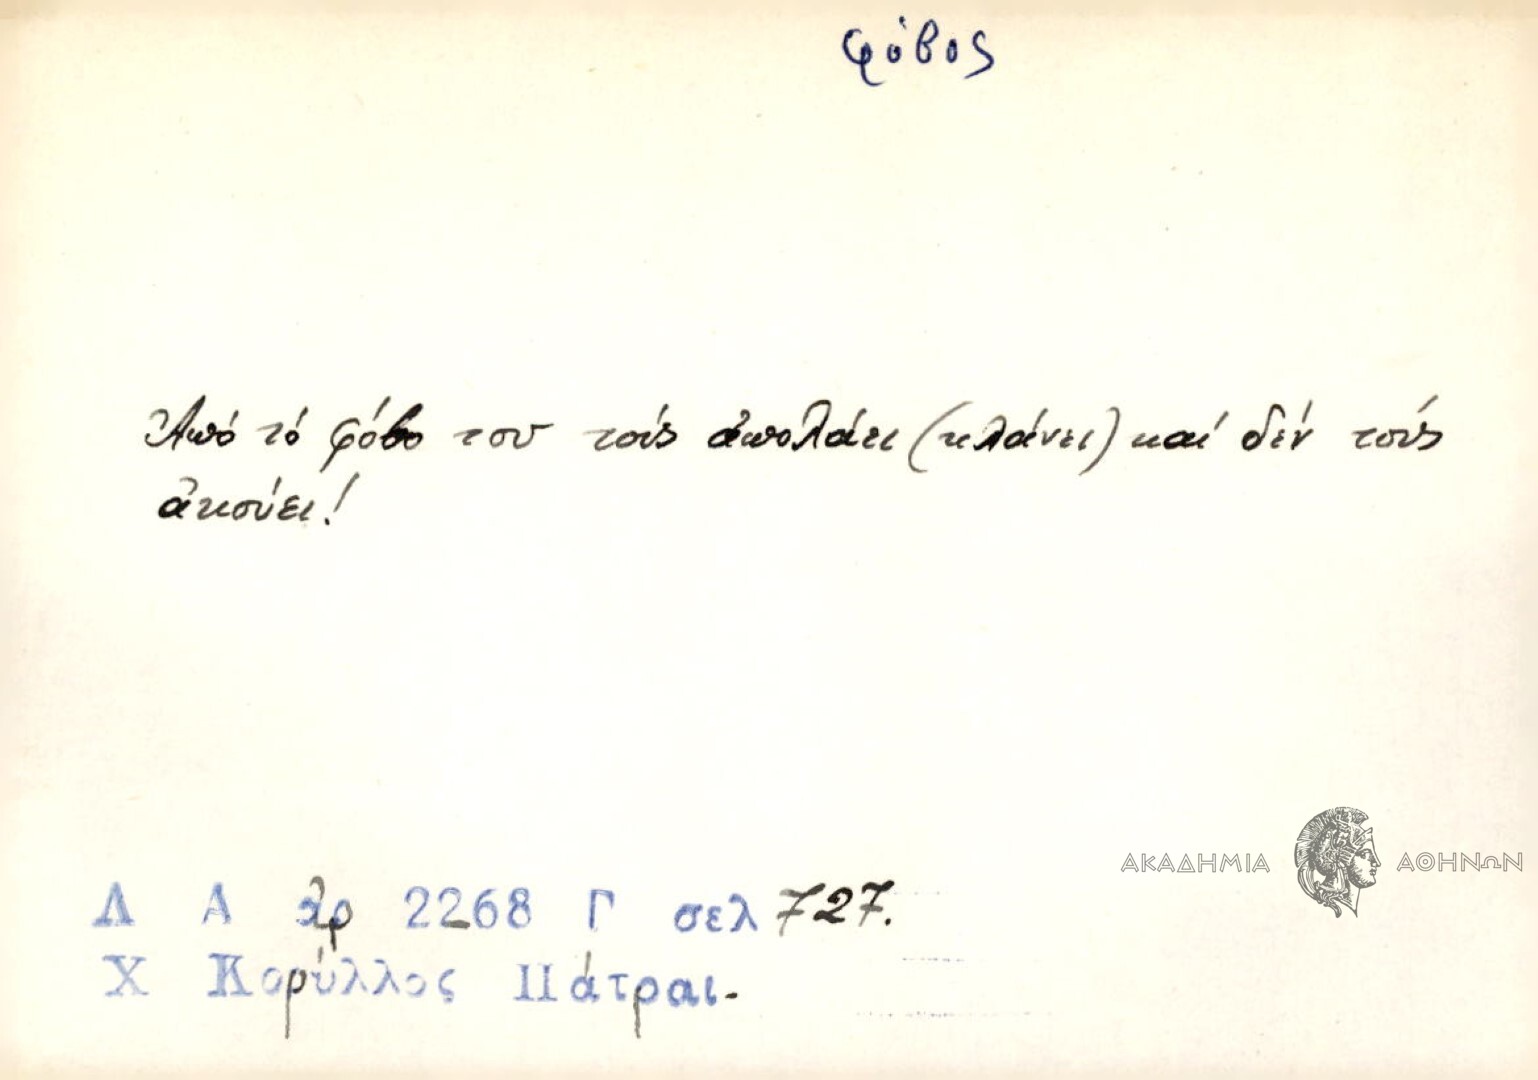 φόβος
Ἀπό τό φόβο του τούς ἀπολάει (κλάνει) καί δέν τούς
ἀκούει!
ΑΚΑΔΗΜΙΑ ΑΘΗΝΩΝ
Λ Α ἀρ 2268 Γ σελ 727.
Χ Κορύλλος Πάτραι.